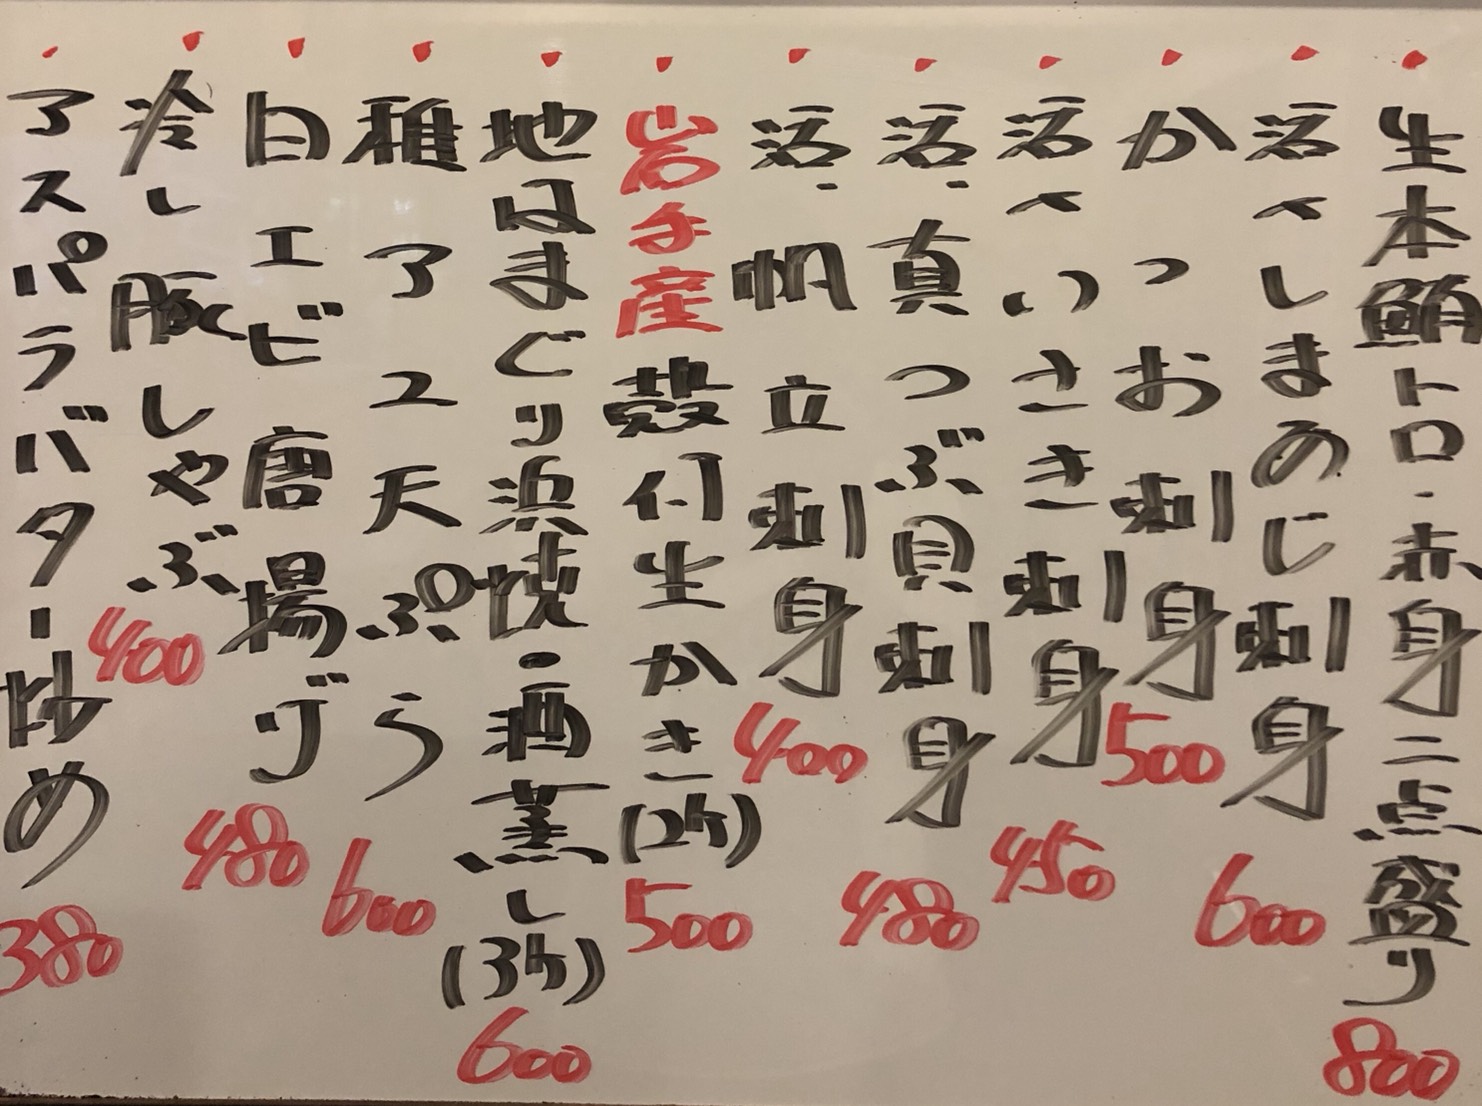 生本鮪トロ・赤身二点盛り 800
活〆しまあじ刺身 600
かつお刺身 500
活〆いさき刺身 450
活・真つぶ貝刺身 480
活・帆立刺身 400
岩手産殻付生かき(2ケ) 500
地はまぐり浜焼・酒蒸し(3ケ) 600
稚アユ天ぷら 600
白エビ唐揚げ 480
冷し豚しゃぶ 400
アスパラバター炒め 380